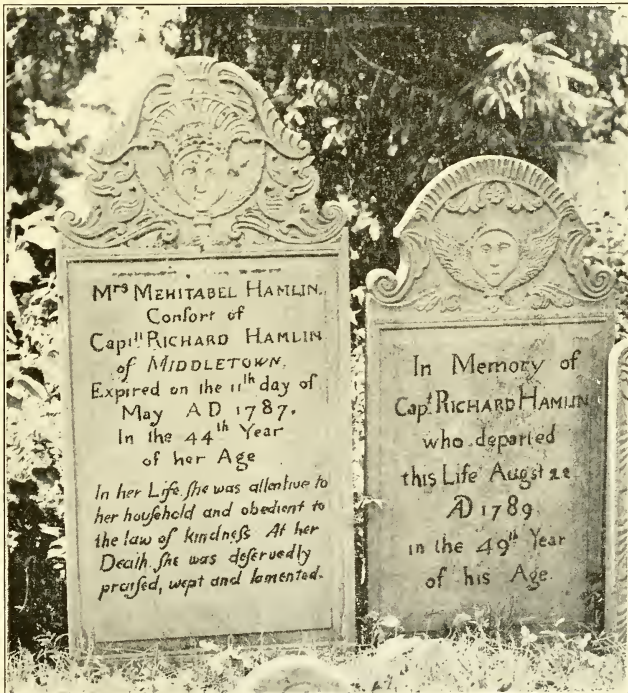 Mrs MEHITABEL HAMLIN.
Confort of
Captn RICHARD HAMLIN
of MIDDLETOWN,
Expired on the 11th day of
May AD 1787.
In the 44th Year
of her Age
In her Life ſhe was attentive to
her houſehold and obedient to
the law of kindneſs At her
Death ſhe was deſervedly
praiſed, wept and lamented.
In Memory of
Capt RICHARD HAMLIN
who departed
this Life Augst 22
AD 1789
in the 49th Year
of his Age